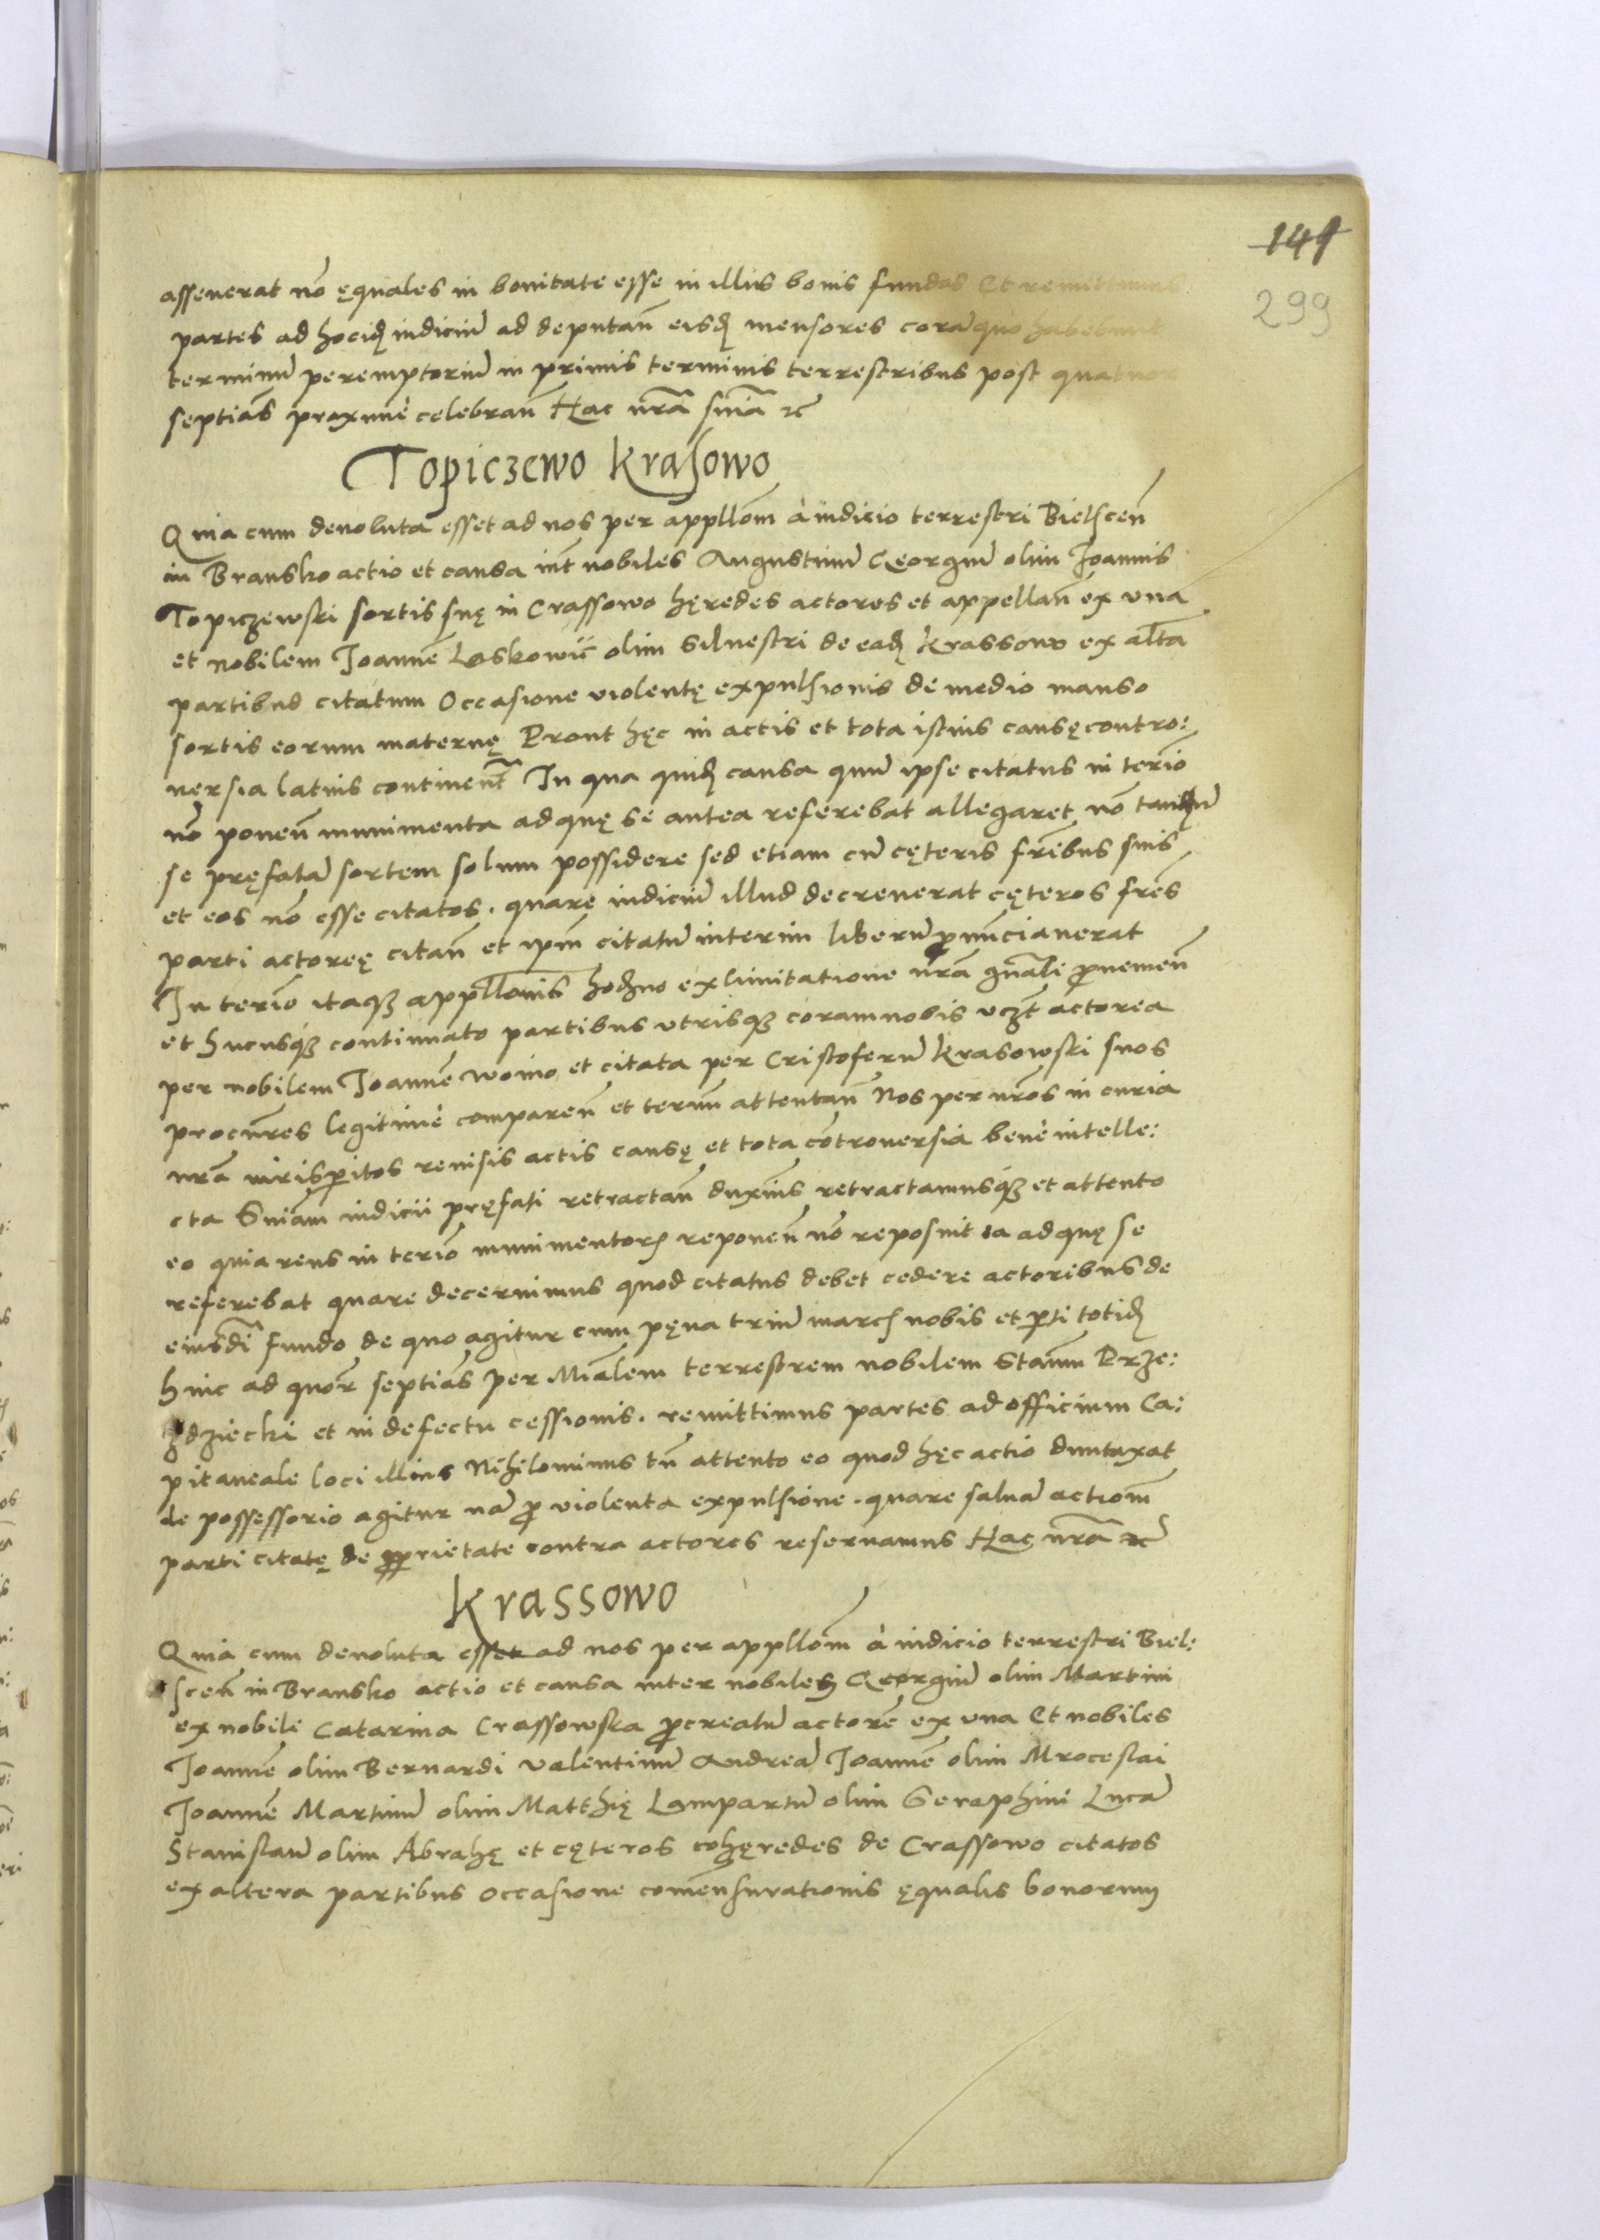 141
299
asseuerat nō ęquales in bonitate esse in illis bonis fundos Et remittimus
partes ad hocidq iudiciū ad deputan̄ eisdq mensores corā quo habebunt
terminū peremptoriū in primis terminis terrestribus post quatuor
septiās proximè celebran̄ Hac nr̄a sn̄ia etc
Topiczewo Krasowo
Quia cum deuoluta esset ad nos per appllōm à iudicio terrestri Bielscen̄
in Bransko actio et causa int̄ nobiles Augustinū Georgiū olim Joannis
Topiczewski sortis suę in Crassowo hęredes actores et appellan̄ ex vna
et nobilem Joannē Loskowic̄ olim Siluestri de eadq Krassowo ex alt̄a
partibus citatum Occasione violentę expulsionis de medio manso
sortis eorum maternę Prout hęc in actis et tota istius causę contro:
uersia latius continent̄ In qua quidq causa quū ipse citatus in ter̄io
nō ponen̄ munimenta ad quę se antea referebat allegaret nō tantū
se pręfatā sortem solum possidere sed etiam cū cęteris fr̄ibus suis
et eos nō esse citatos. quare iudiciū illud decreuerat cęteros fr̄es
parti actoreę citan̄ et ip̄m citatū interim liberū pnunciauerat
In ter̄io itaqȝ appllōnis hodierno ex limitatione nr̄a gn̄ali puenien̄
et hucusqȝ continuato partibus vtrisqȝ coram nobis vczt actorea
per nobilem Joannē Woino et citata per Cristoferū Krasowski suos
procur̄es legitimè comparen̄ et ter̄m attentan̄ Nos per nr̄os in curia
nr̄a iurisperitos reuisis actis causę et tota cōtrouersia benè intelle:
cta Sn̄iam iudicii pręfati retractan̄ duximus retractamusqȝ et attento
eo quia reus in ter̄io munimentorꝝ reponen̄ nō reposuit ea ad quę se
referebat quare decernimus quod citatus debet cedere actoribus de
eiusdi fundo de quo agitur cum pęna triū marcꝝ nobis et pti totidq
hinc ad quor̄ septiās per Mīalem terrestrem nobilem Stanm̄ Prze:
dziecki et in defectu cessionis. remittimus partes ad officium Ca:
pitaneale loci illius Nihilominus tn̄ attento eo quod hęc actio duntaxat
de possessorio agitur nā p violenta expulsione. quare saluā actiōm
parti citatę de pprietate contra actores reseruamus Hac nr̄a etc
Krassowo
Quia cum deuoluta esset ad nos per appllōm à iudicio terrestri Biel:
scen̄ in Bransko actio et causa inter nobiles Georgiū olim Martini
ex nobile Catarina Crassowska pcreatū actorē ex vna Et nobiles
Joannē olim Bernardi Valentinū Andreā Joannē olim Mroceslai
Joannē Martinū olim Matthię Lampartū olim Seraphini Lucā
Stanislaū olim Abrahę et cęteros cohęredes de Crassowo citatos
ex altera partibus Occasione comensurationis ęqualis bonorum